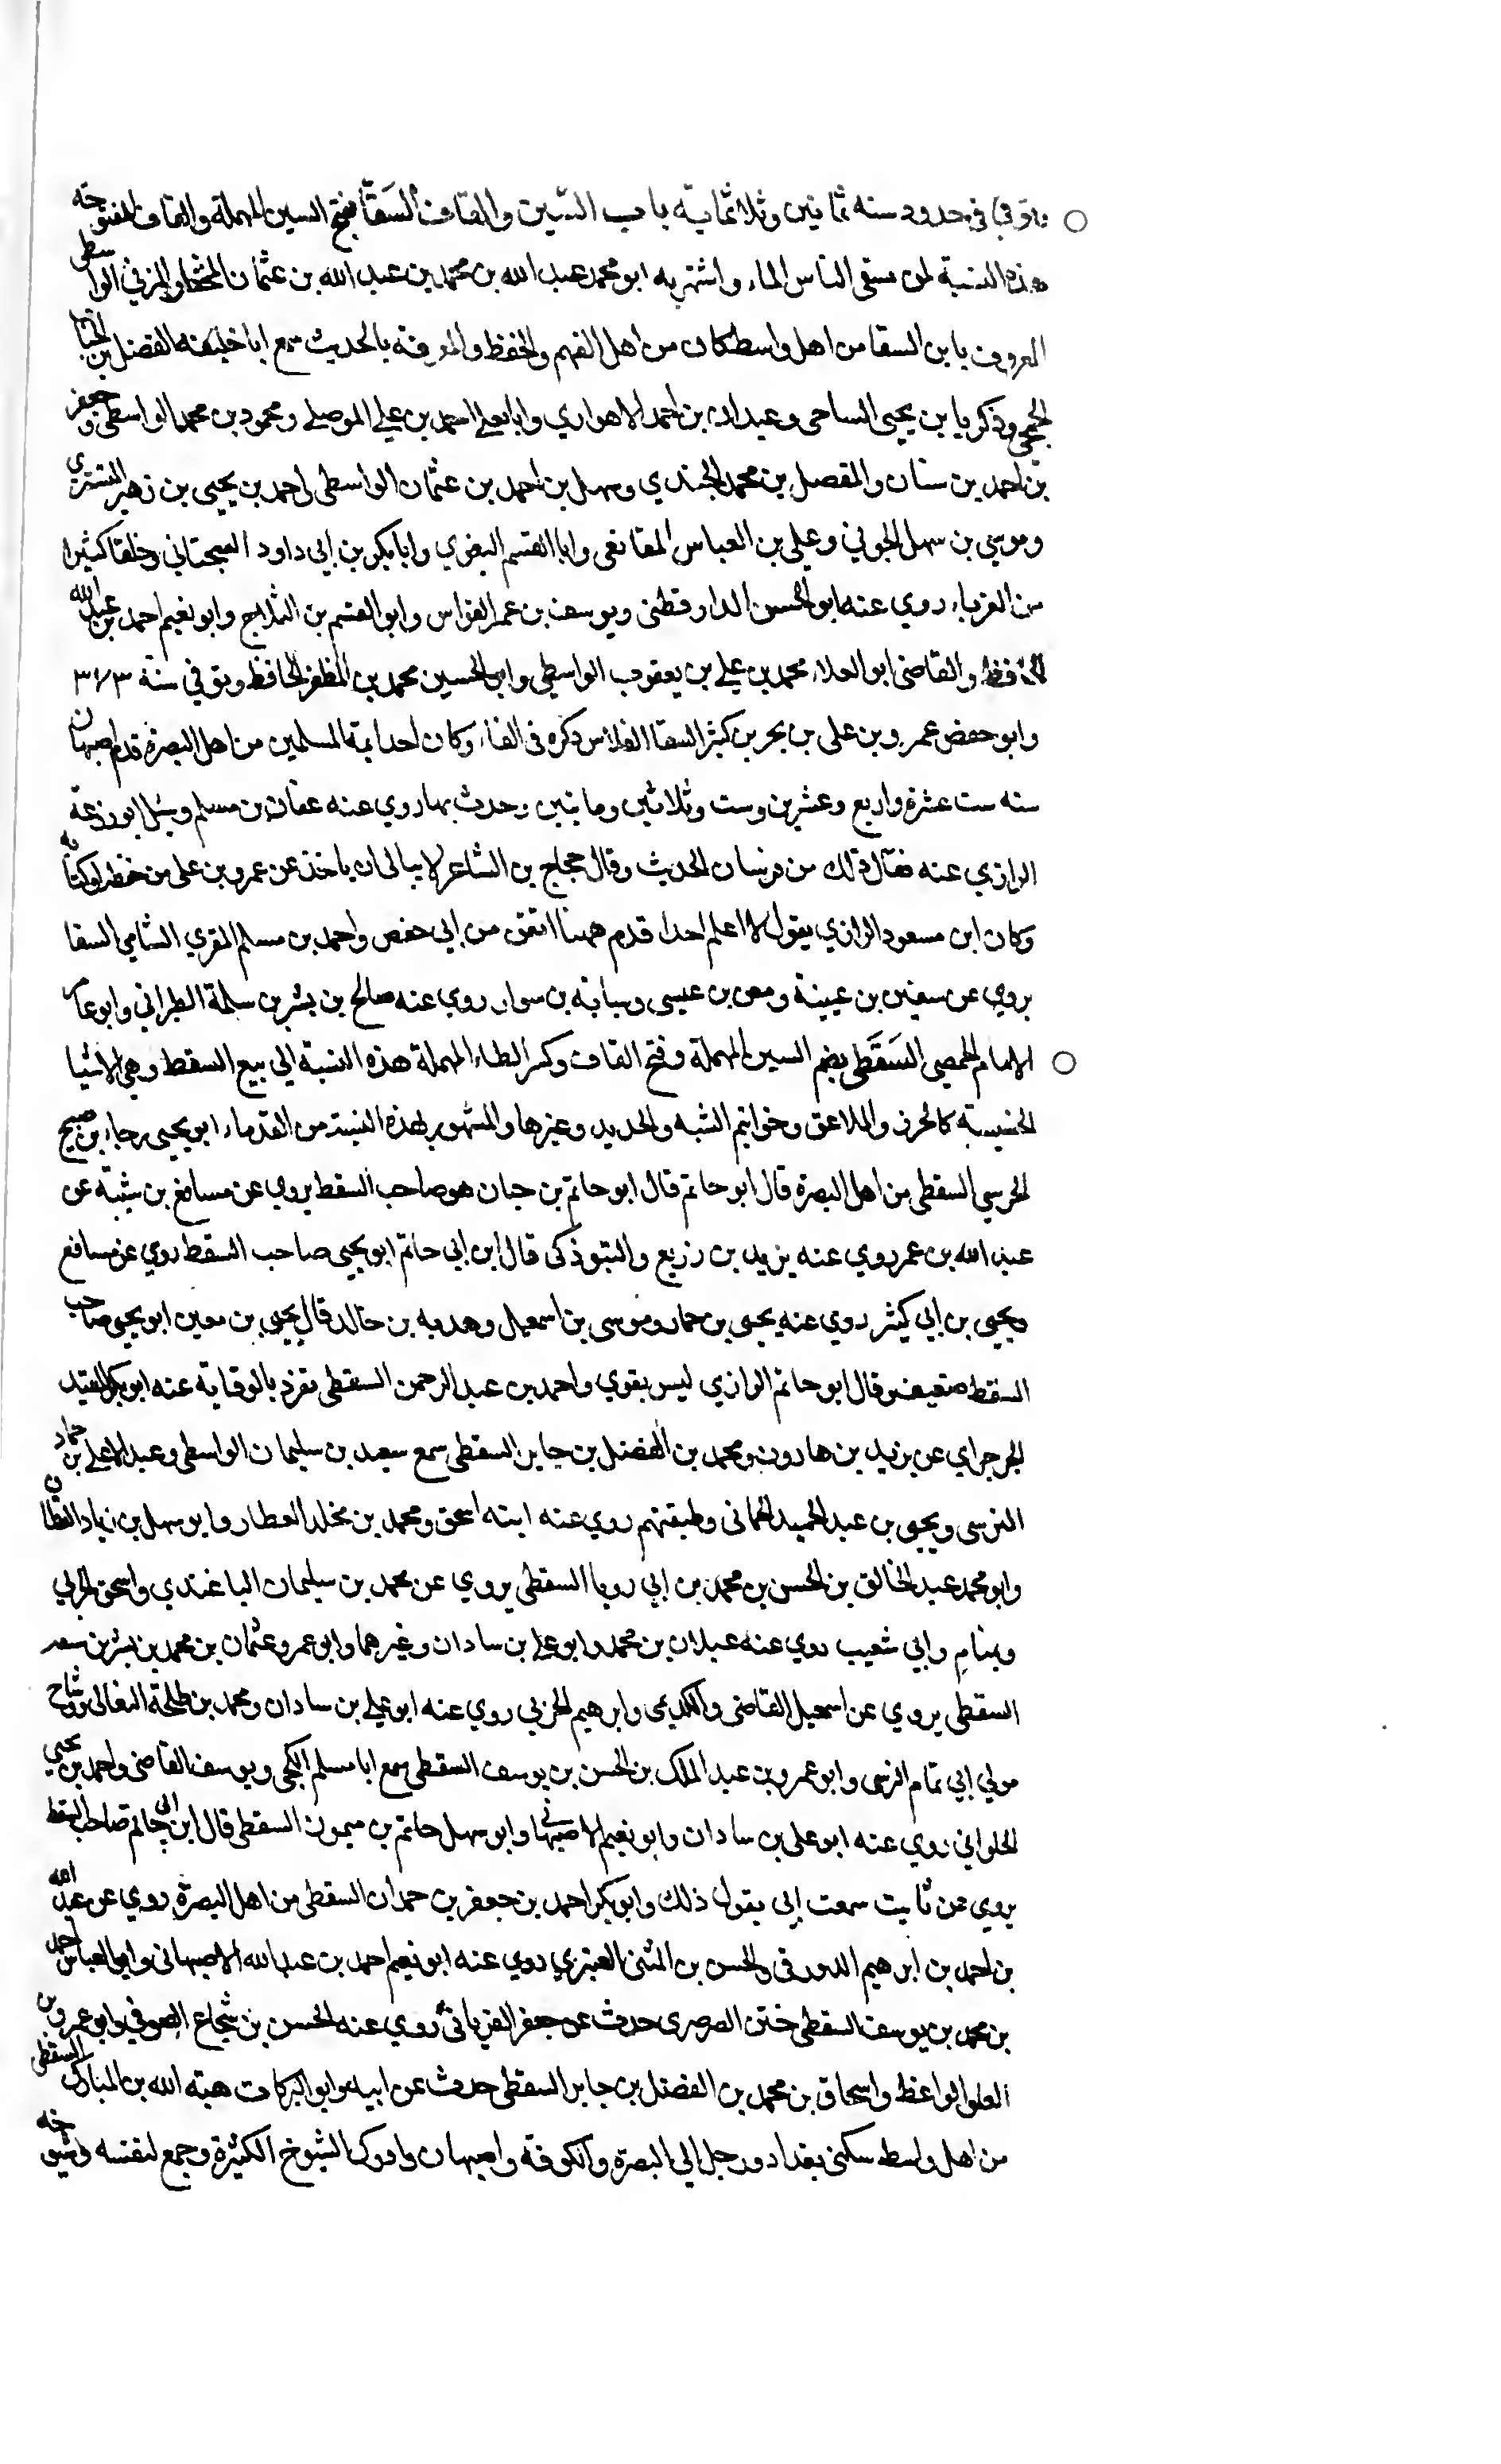 وتوفي في حدود سنه ثمانين وثلاثمايه باب السين والقاف السَقّا بفتح السين المهملة والقاف المفتوحه
هذه النسبة لمن سقى الناس الماء واشتهر به ابو محمد عبد الله بن محمد بن عبد الله بن عثمان المختار المزني الواسطي
المعروف بابن السقا من اهل واسط كان من اهل الفهم والحفظ والمعرفة بالحديث سمع ابا خليفه الفضل بن الحباب
الجمحي وذكريا بن يحيى الساجي وعبدان بن احمد الاهوازي وابا يعلى احمد بن علي الموصلي ومحمود بن محمد الواسطي وجعفر
بن احمد بن سنان والمفصل بن محمد الجندي وسهل بن احمد بن عثمان الواسطي واحمد بن يحيى بن زهير التستري
وموسى بن سهل الجوني وعلي بن العباس المقانعي وابا القسم البغوي وابا بكر بن ابي داود السجستاني وخلقا كثيرا
من الغرباء روي عنه ابو الحسن الدارقطني ويوسف بن عمر القواس وابو القسم بن الثلاج وابو نعيم احمد بن عبد الله
الحافظ والقاضي ابو العلاء محمد بن علي بن يعقوب الواسطي وابو الحسين محمد بن المظفر الحافظ وتوفي سنة ٣٧٣
وابو حفص عمرو بن علي بن بحر بن كنيز السقا الفلاس ذكره في الفاء وكان احد ايمة المسلمين من اهل البصرة قدم اصبهان
سنه ست عشرة واربع وعشرين وست وثلاثين ومايتين وحدث بها روي عنه عفان بن مسلم وسئل ابو زرعة
الرازي عنه فقال ذلك من فرسان الحديث وقال حجاج بن الشاعر لا يبالي ان ياخذ عن عمرو بن علي من حفظه او كتابه
وكان ابن مسعود الرازي يقول لا اعلم احدا قدم ههنا اتقن من ابي حفص واحمد بن مسلم المقري الشامي السقا
يروي عن سفين بن عيينة ومعن بن عيسى وشبابة بن سوار روي عنه صالح بن بشر بن سلمة الطبراني وابو عامر
الامام الحمصي السَقَطي بضم السين المهملة وفتح القاف وكسر الطاء المهملة هذه النسبة الي بيع السقط وهي الاشيا
الخسيسة كالخرز والملاعق وخواتيم الشبه والحديد وغيرها والمشهور بهذه النسبة من القدماء ابو يحيى رجاء بن صبيح
الحرسي السقطي من اهل البصرة قال ابو حاتم قال ابو حاتم بن حبان هو صاحب السقط يروي عن مسافع بن شيبة عن
عبد الله بن عمر روي عنه يزيد بن زريع والتبوذكي قال ابن ابي حاتم ابو يحيى صاحب السقط روي عن مسافع
ويحيى بن ابي كثير روي عنه يحيى بن حماد وموسى بن اسمعيل وهدبه بن خالد قال يحيى بن معين ابو يحيى صاحب
السقط ضعيف وقال ابو حاتم الرازي ليس بقوي واحمد بن عبد الرحمن السقطي تفرد بالرواية عنه ابو بكر المفيد
الجرجراي عن يزيد بن هارون ومحمد بن الفضل بن جابر السقطي سمع سعيد بن سليمان الواسطي وعبد الاعلى بن حماد
النرسي ويحيى بن عبد الحميد الحماني وطبقتهم روي عنه ابنه اسحق ومحمد بن مخلد العطار وابو سهل بن زياد القطان
وابو محمد عبد الخالق بن الحسن بن محمد بن ابي روبا السقطي يروي عن محمد بن سليمان الباغندي واسحق الحربي
وتمتام وابي شعيب روي عنه عبدان بن محمد وابو علي بن شادان وغيرهما وابو عمرو عثمان بن محمد بن بشر بن سعد
السقطي يروي عن اسمعيل القاضي والكديمي وابرهيم الحربي روي عنه ابو علي بن سادان ومحمد بن طلحة النعالي
مولي ابي تمام الزينبي وابو عمرو بن عبد الملك بن الحسن بن يوسف السقطي سمع ابا مسلم الكجي ويوسف القاضي واحمد بن يحيى
الحلواني روي عنه ابو علي بن سادان وابو نعيم الاصبهاني وابو سهل حاتم بن ميمون السقطي قال ابن ابي حاتم صاحب السقط
يروي عن ثابت سمعت ابي يقول ذلك وابو بكر احمد بن جعفر بن حمدان السقطي من اهل البصرة روي عن عبد الله
بن احمد بن ابرهيم الدورقي والحسن بن المثنى العنبري روي عنه ابو نعيم احمد بن عبد الله الاصبهاني وابو العباس احمد
بن محمد بن يوسف السقطي ختن الصرصري حدث عن جعفر الفريابي روي عنه الحسن بن شجاع الصوفي وابو عمرو بن
العلو الواعظ واسحاق بن محمد بن الفضل بن جابر السقطي حدث عن ابيه وابو البركات هبة الله بن المبارك السقطي
من اهل واسط سكن بغداد ورحل الي البصرة والكوفة واصبهان وادرك الشيوخ الكثيرة وجمع لنفسه مشيوخه